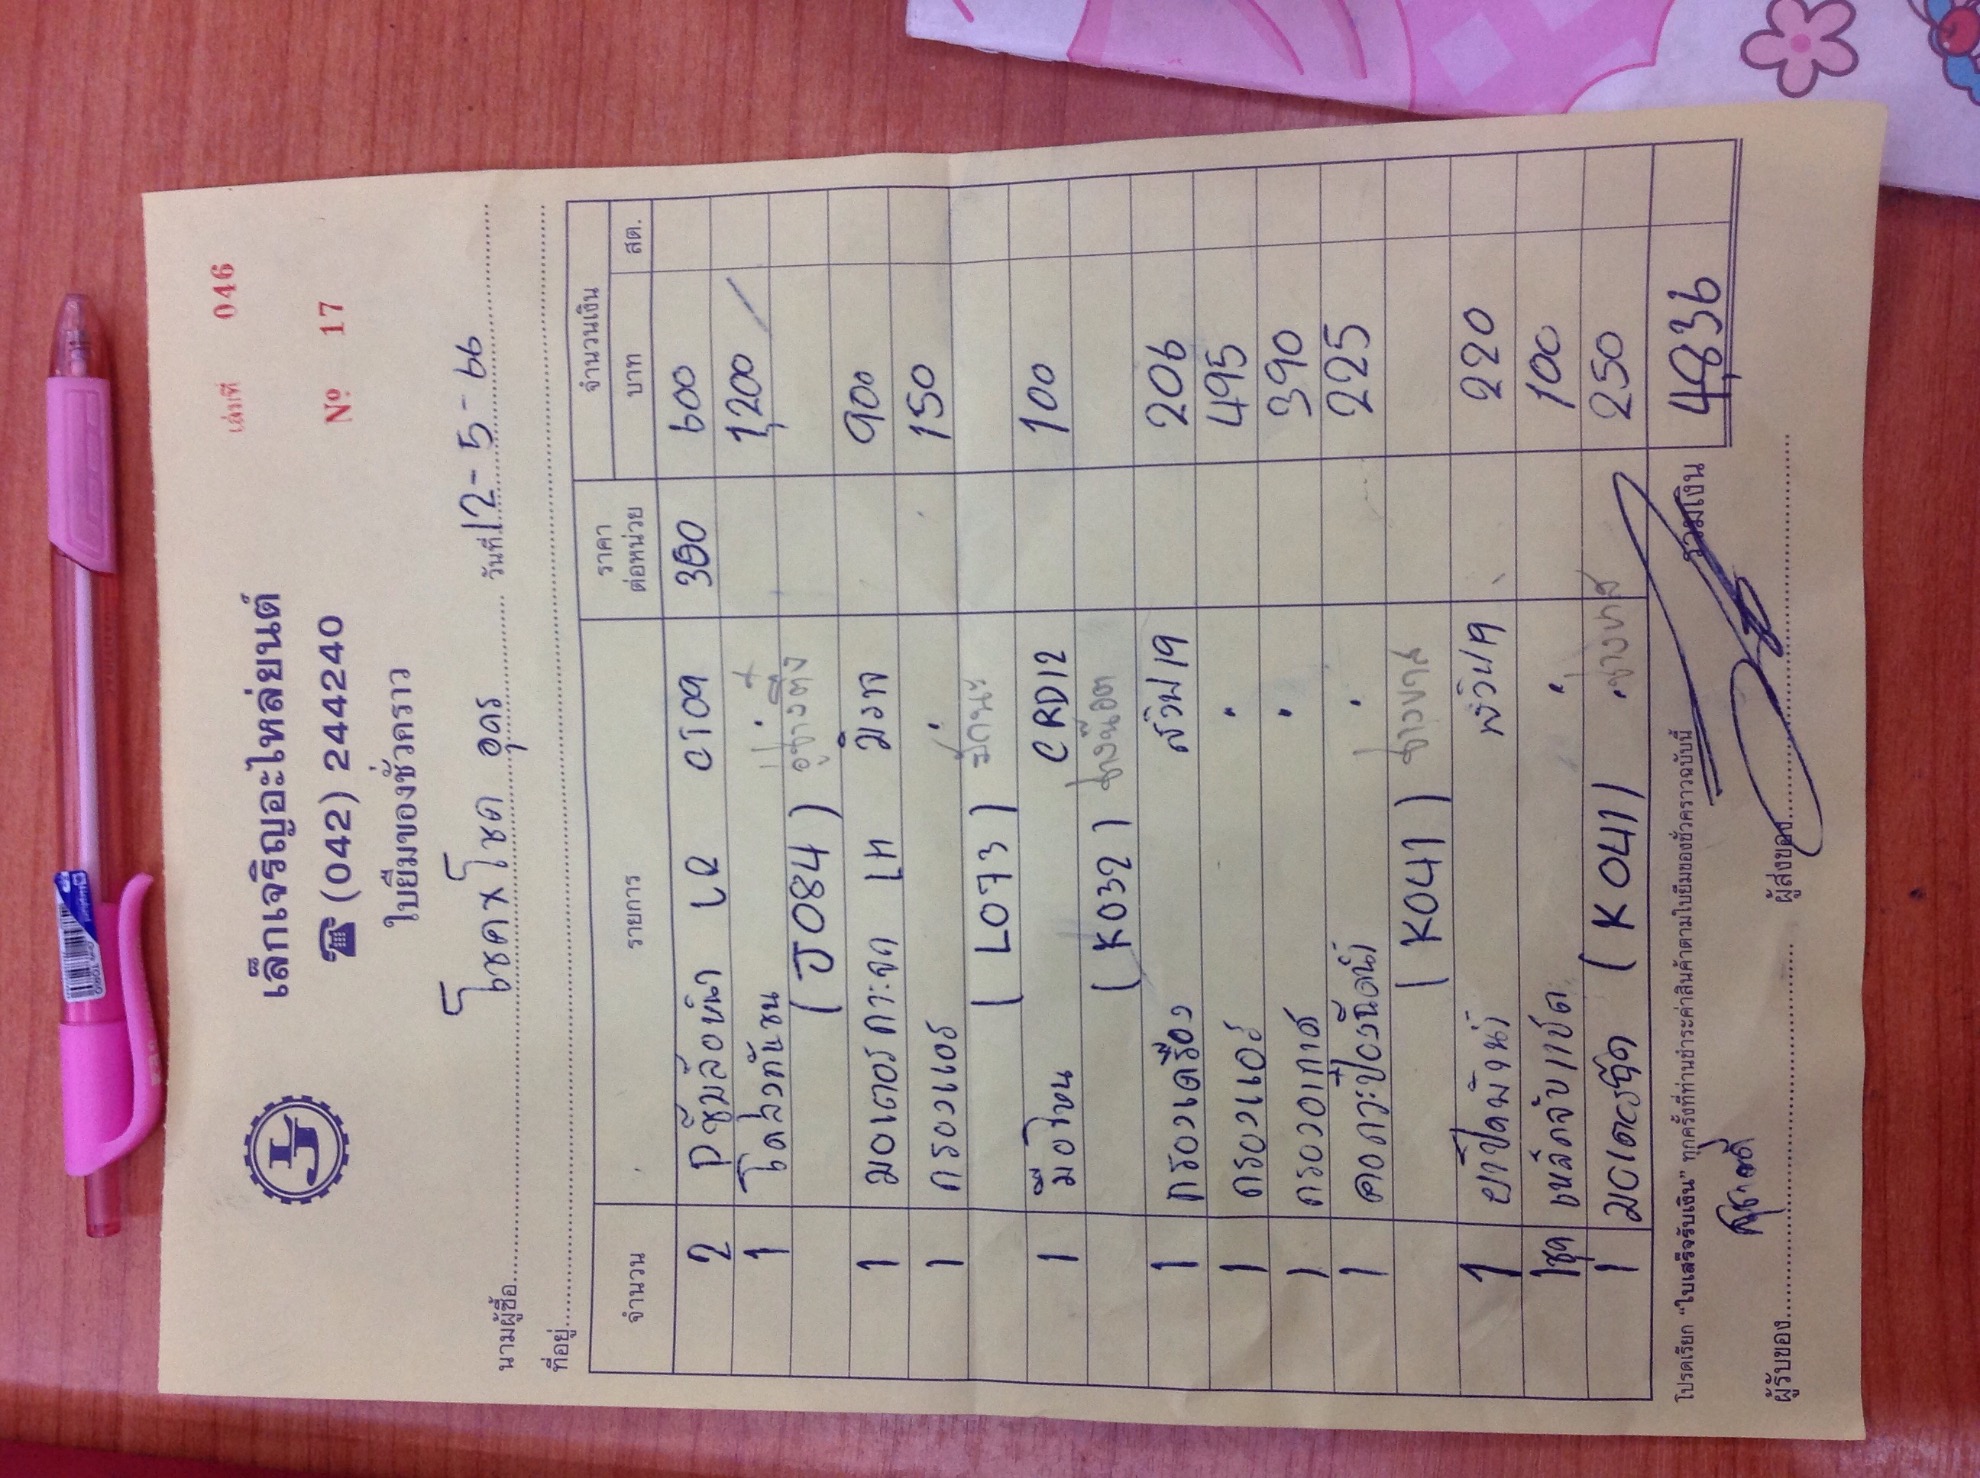 เล่มที่ 046
เล็กเจริญอะไหล่ยนต์
☎ (042) 244240
№ 17
ใบยืมของชั่วคราว
นามผู้ซื้อ โชคxโชค อุดร วันที่ 12-5-66
ที่อยู่
จำนวน รายการ ราคาต่อหน่วย จำนวนเงิน
บาท สต.
2 ปั๊มล้อหน้า LR 300 600
1 1,200
(J084) อู่ช่างติ่ง
1 มอเตอร์กระจก LH มิราจ 900
1 กรองแอร์ " 150
(L073)
1 มือโหน CRD12 100
(K032)
1 กรองเครื่อง 206
1 กรองแอร์ " 495
1 กรองอากาศ " 390
1 คอกระป๋องฉีดน้ำ " 225
(K041)
1 220
1ชุด เหล็กจับแป๊ด " 100
1 (K041) " 250
รวมเงิน 4,836
โปรดเรียก “ใบเสร็จรับเงิน” ทุกครั้งที่ท่านชำระค่าสินค้าตามใบยืมของชั่วคราวฉบับนี้
ผู้รับของ ผู้ส่งของ